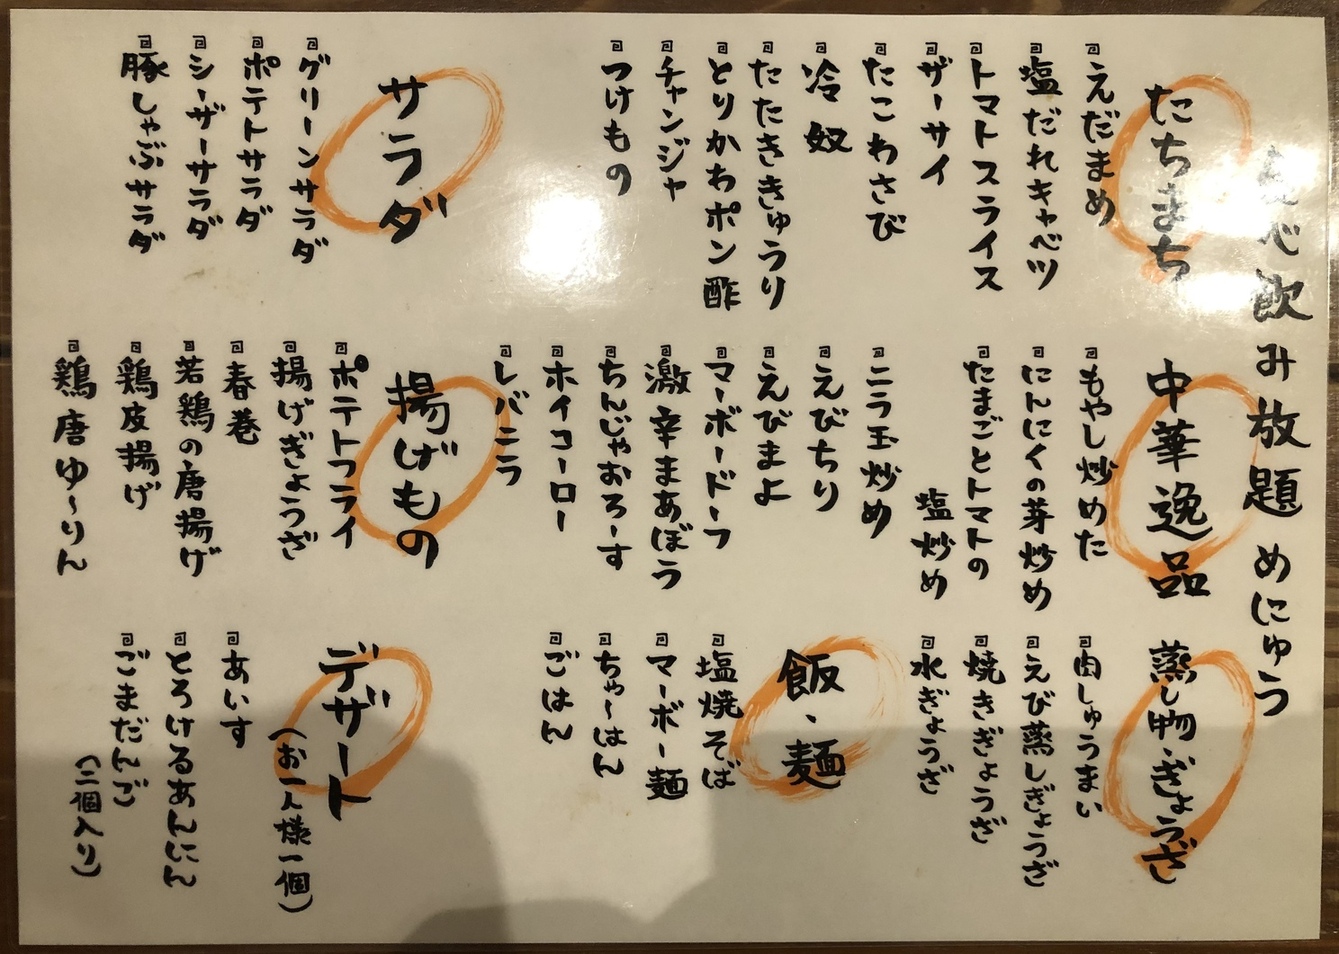 飲み放題 めにゅう
たちまち
えだまめ
塩だれキャベツ
トマトスライス
ザーサイ
たこわさび
冷奴
たたききゅうり
とりかわポン酢
チャンジャ
つけもの
サラダ
グリーンサラダ
ポテトサラダ
シーザーサラダ
豚しゃぶサラダ
中華逸品
もやし炒めた
にんにくの芽炒め
たまごとトマトの
塩炒め
ニラ玉炒め
えびちり
えびまよ
マーボードーフ
激辛まあぼう
ちんじゃおろーす
ホイコーロー
レバニラ
揚げもの
ポテトフライ
揚げぎょうざ
春巻
若鶏の唐揚げ
鶏皮揚げ
鶏唐ゆ〜りん
蒸し物・ぎょうざ
肉しゅうまい
えび蒸しぎょうざ
焼きぎょうざ
水ぎょうざ
飯・麺
塩焼そば
マーボー麺
ちゃーはん
ごはん
デザート
(お一人様一個)
あいす
とろけるあんにん
ごまだんご
(二個入り)